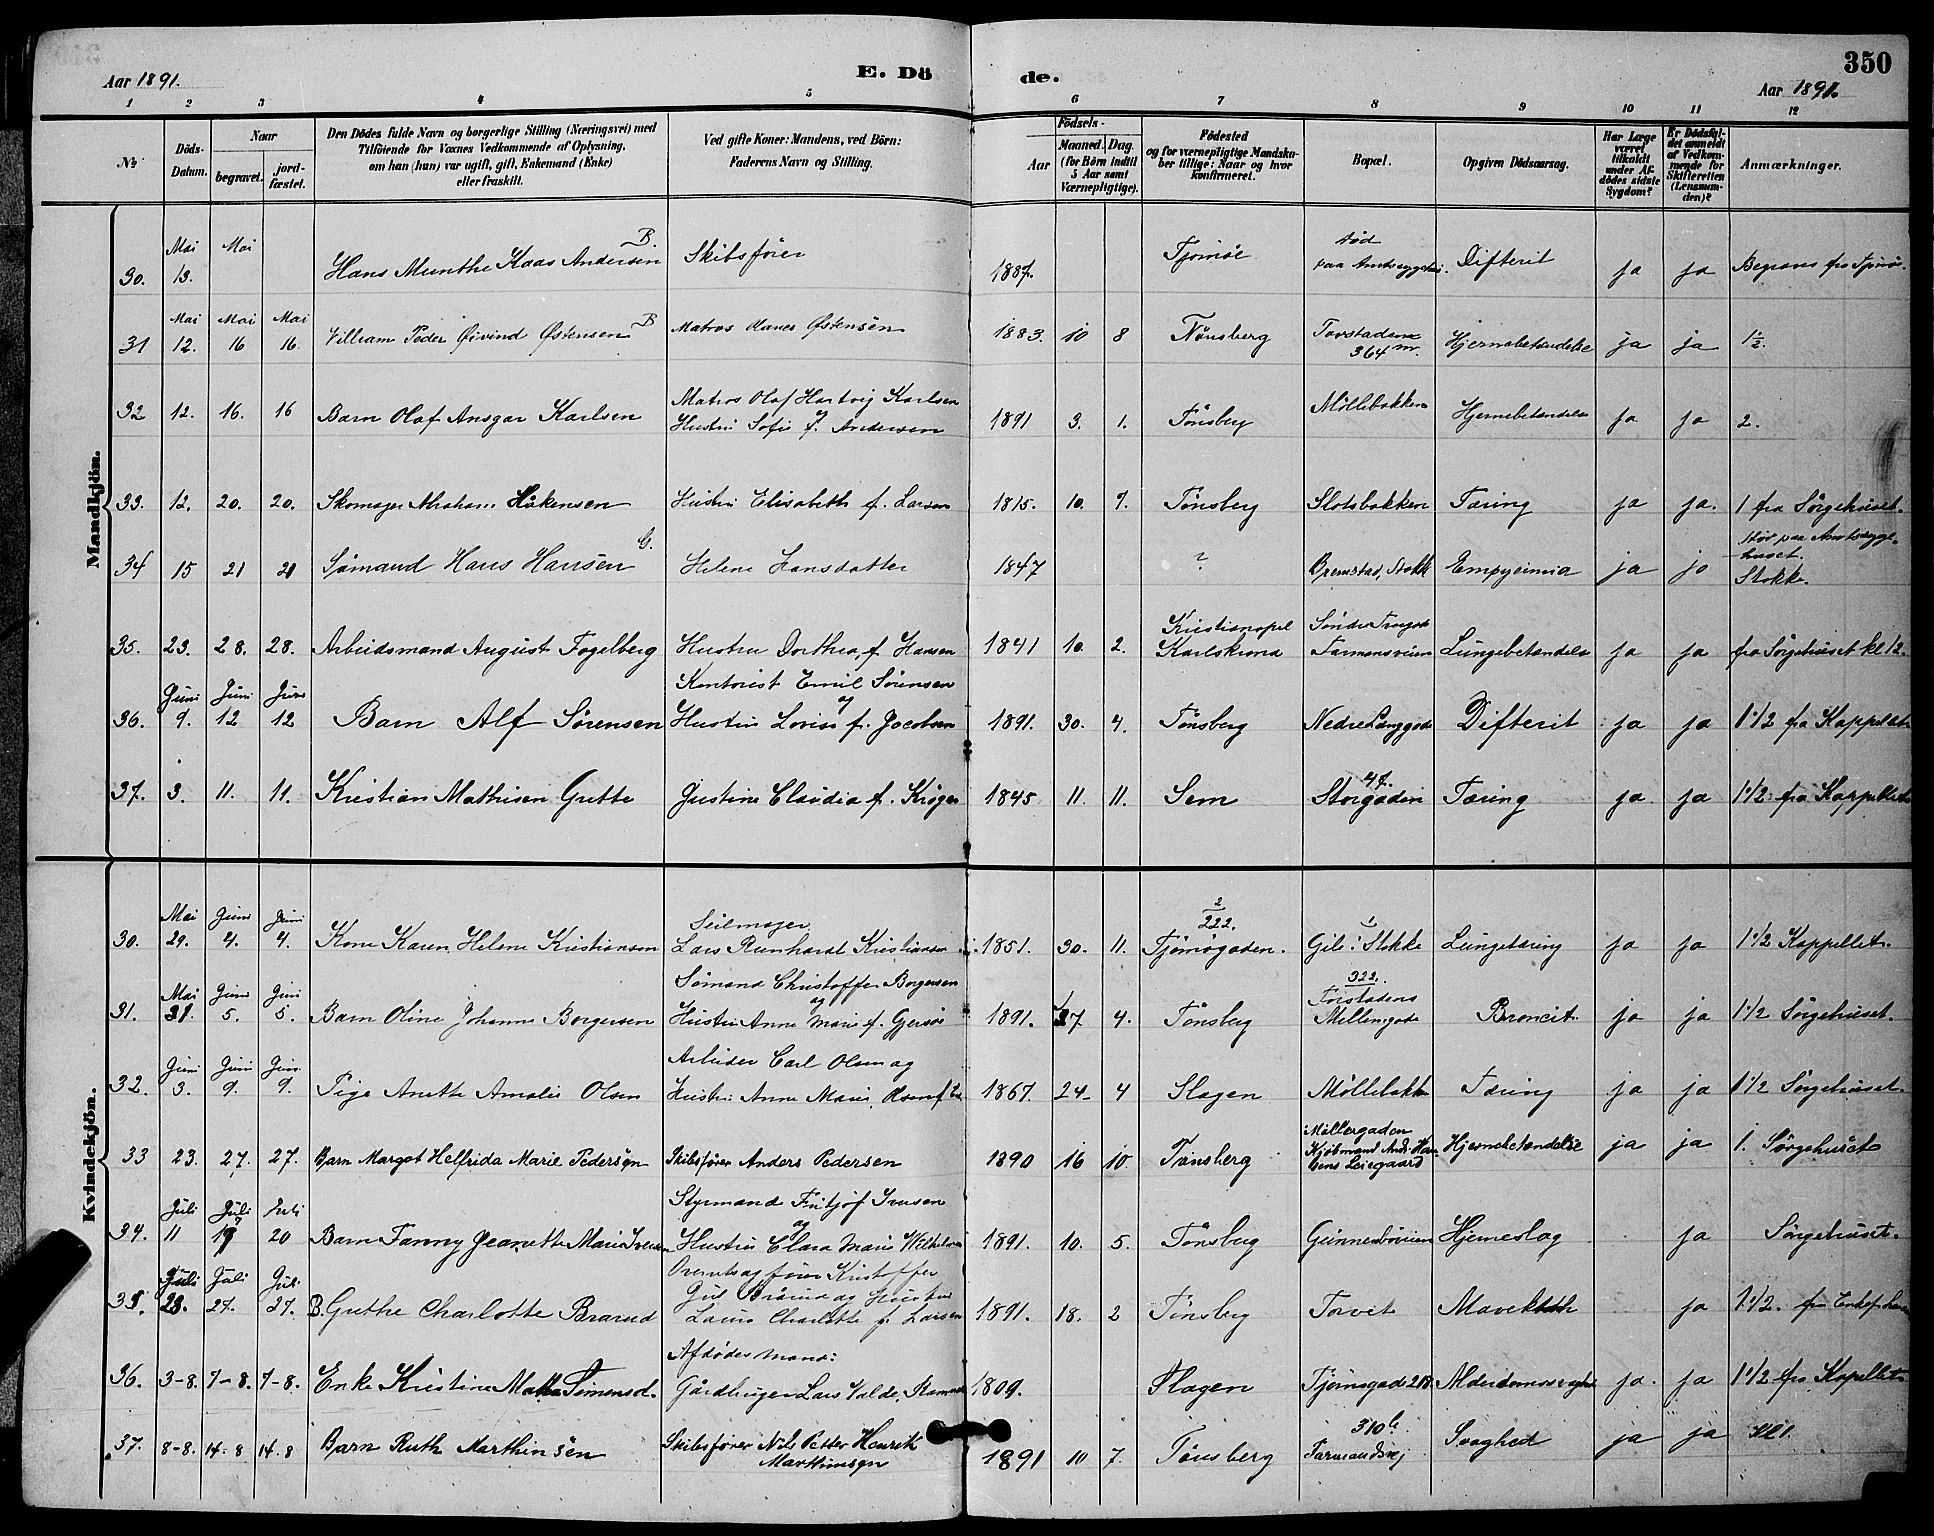 Aar 1891.
E. Dö
de.
350
Aar 1891.
1 2 3 4 5 6 7 8 9 10 11 12
No
Döds-Datum.
Naar
begravet.
jordfæstet.
Den Dödes fulde Navn og borgerlige Stilling (Næringsvei) med
Tilföiende for Voxnes Vedkommende af Oplysning,
om han (hun) var ugift, gift, Enkemand (Enke)
eller fraskilt.
Ved gifte Koner: Mandens, ved Börn:
Faderens Navn og Stilling.
Födsels-
Aar
Maaned. Dag.
(for Börn indtil
5 Aar samt
Værnepligtige).
Födested
og for værnepligtige Mandskaber tillige: Naar og hvor
konfirmeret.
Bopæl.
Opgiven Dödsaarsag.
Har Læge været tilkaldt under Afdödes sidste Sygdom?
Er Dödsfaldet anmeldt af Vedkommende for Skifteretten (Lensmanden)?
Anmærkninger.
Mandkjön.
30. Mai 13. Mai Hans Munthe Kaas Andersen B. Skibsfører 1887. Tjømøe død paa Amtssygehus. Difterit ja ja Begraves fra Tjømø.
31 Mai 12. Mai 16 Mai 16. William Peder Øivind Østensen B Matros Hanes Østensen 1883. 10 8 Tønsberg 364 Hjernebetændelse ja ja 1½.
32 12. 16. 16 Barn Olaf Ansgar Karlsen Matros Olaf Hartvig Karlsen
og Hustru Sofie f. Andersen 1891 3. 1. Tønsberg Møllebakken Hjernebetændelse ja ja 2.
33. 12. 20. 20. Skomager Abraham Håkensen Hustru Elisabeth f. Larsen 1815. 10. 7. Tønsberg Slotsbakken Tæring ja ja. 1 fra Sørgehuset.
34 15 21 21 Sømand Hans Hansen G. Helene Hansdatter 1847 ? Stokke Empyeimia ja ja død paa Amtssygehuset.
Stokke.
35. 23. 28. 28. Arbeidsmand August Fogelberg Hustru Dorthea f. Hansen 1841 10. 2. Kristianopel
Karlskrona Farmansveien Lungebetændelse ja ja fra Sørgehuset kl 12.
36. Juni 9. Juni 12 Juni 12 Barn Alf Sørensen Kontorist Emil Sørensen
og
Hustru Lovise f. Jacobsen 1891. 30. 4. Tønsberg Nedre Langgade Difterit ja ja 1½ fra Kappellet
37. 3. 11. 11. Kristian Mathisen Grette Justine Claudia f. Krøger 1845 11. 11. Sem Storgaden 47. Tæring ja ja 1½ fra Kappellet
Kvindekjön.
30. Mai 29. Juni 4. Juni 4. Kone Karen Helene Kristiansen Seilmager
Lars Reinhardt Kristiansen 1851. 30. 11. 2
222.
Tjømøgaden. Gile i Stokke Lungetæring ja ja 1½ Kappellet.
31. Mai 31. Juni 5. Juni 5. Barn Oline Johanne Borgersen Sømand Christoffer Borgersen
og
Hustru Anne Marie f. Gjersøe 1891. 27 4. Tønsberg 322.
Forstadens
Mellemgade Broncit ja ja 1½ Sørgehuset.
32. Juni 3. Juni 9. Juni 9. Pige Anette Amalie Olsen Arbeider Carl Olsen og
Hustru Anne Marie Olsen 1867. 24. 4 Slagen Møllebakken Tæring ja ja 1½ Sørgehuset.
33 23. 27. 27. Barn Margot Helfrida Marie Pedersen Skibsfører Anders Pedersen 1890 16 10. Tønsberg Møllergaden
Kjøbmand Leiegaard Hjernebetændelse ja ja 1. Sørgehuset
34. Juli 11 Juli 17 Juli 20 Barn Fanny Jeanette Marie Iversen Styrmand Fritjof Iversen
og
Hustru Clara Marie Wilhelmsen 1891. 10. 5. Tønsberg Gunnersbøveien Hjerneslag ja Sørgehuset.
35. Juli 23. Juli 27. Juli 27. B. Grethe Charlotte Braarud Kristoffer
og Hustru
Laura Charlotte f. Larsen 1891. 18. 2 Tønsberg Torvet Mavekatarh ja 1½.
36. 3-8. 7-8. 7-8. Enke Kristine Simensd. Afdødes mand:
Gårdbruger Lars 1809. Slagen Tjømøgade Alderdomssvaghed ja. ja 1½ fra Kapellet
37. 8-8. 14-8 14-8 Barn Ruth Marthinsen Skibsfører Nils Petter Henrik
Marthinsen 1891 10 7. Tønsberg 310 b.
Farmandsvej Svaghed ja ja Kl 1.